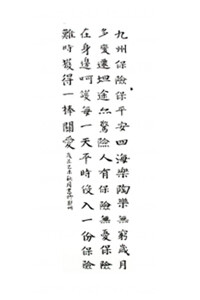 九州保險保平安四海樂陶樂無窮歲月
多變遷坦途無驚險人有保險無憂保險
在身邊呵護每一天平時投入一份保險
難時獲得一棒關愛